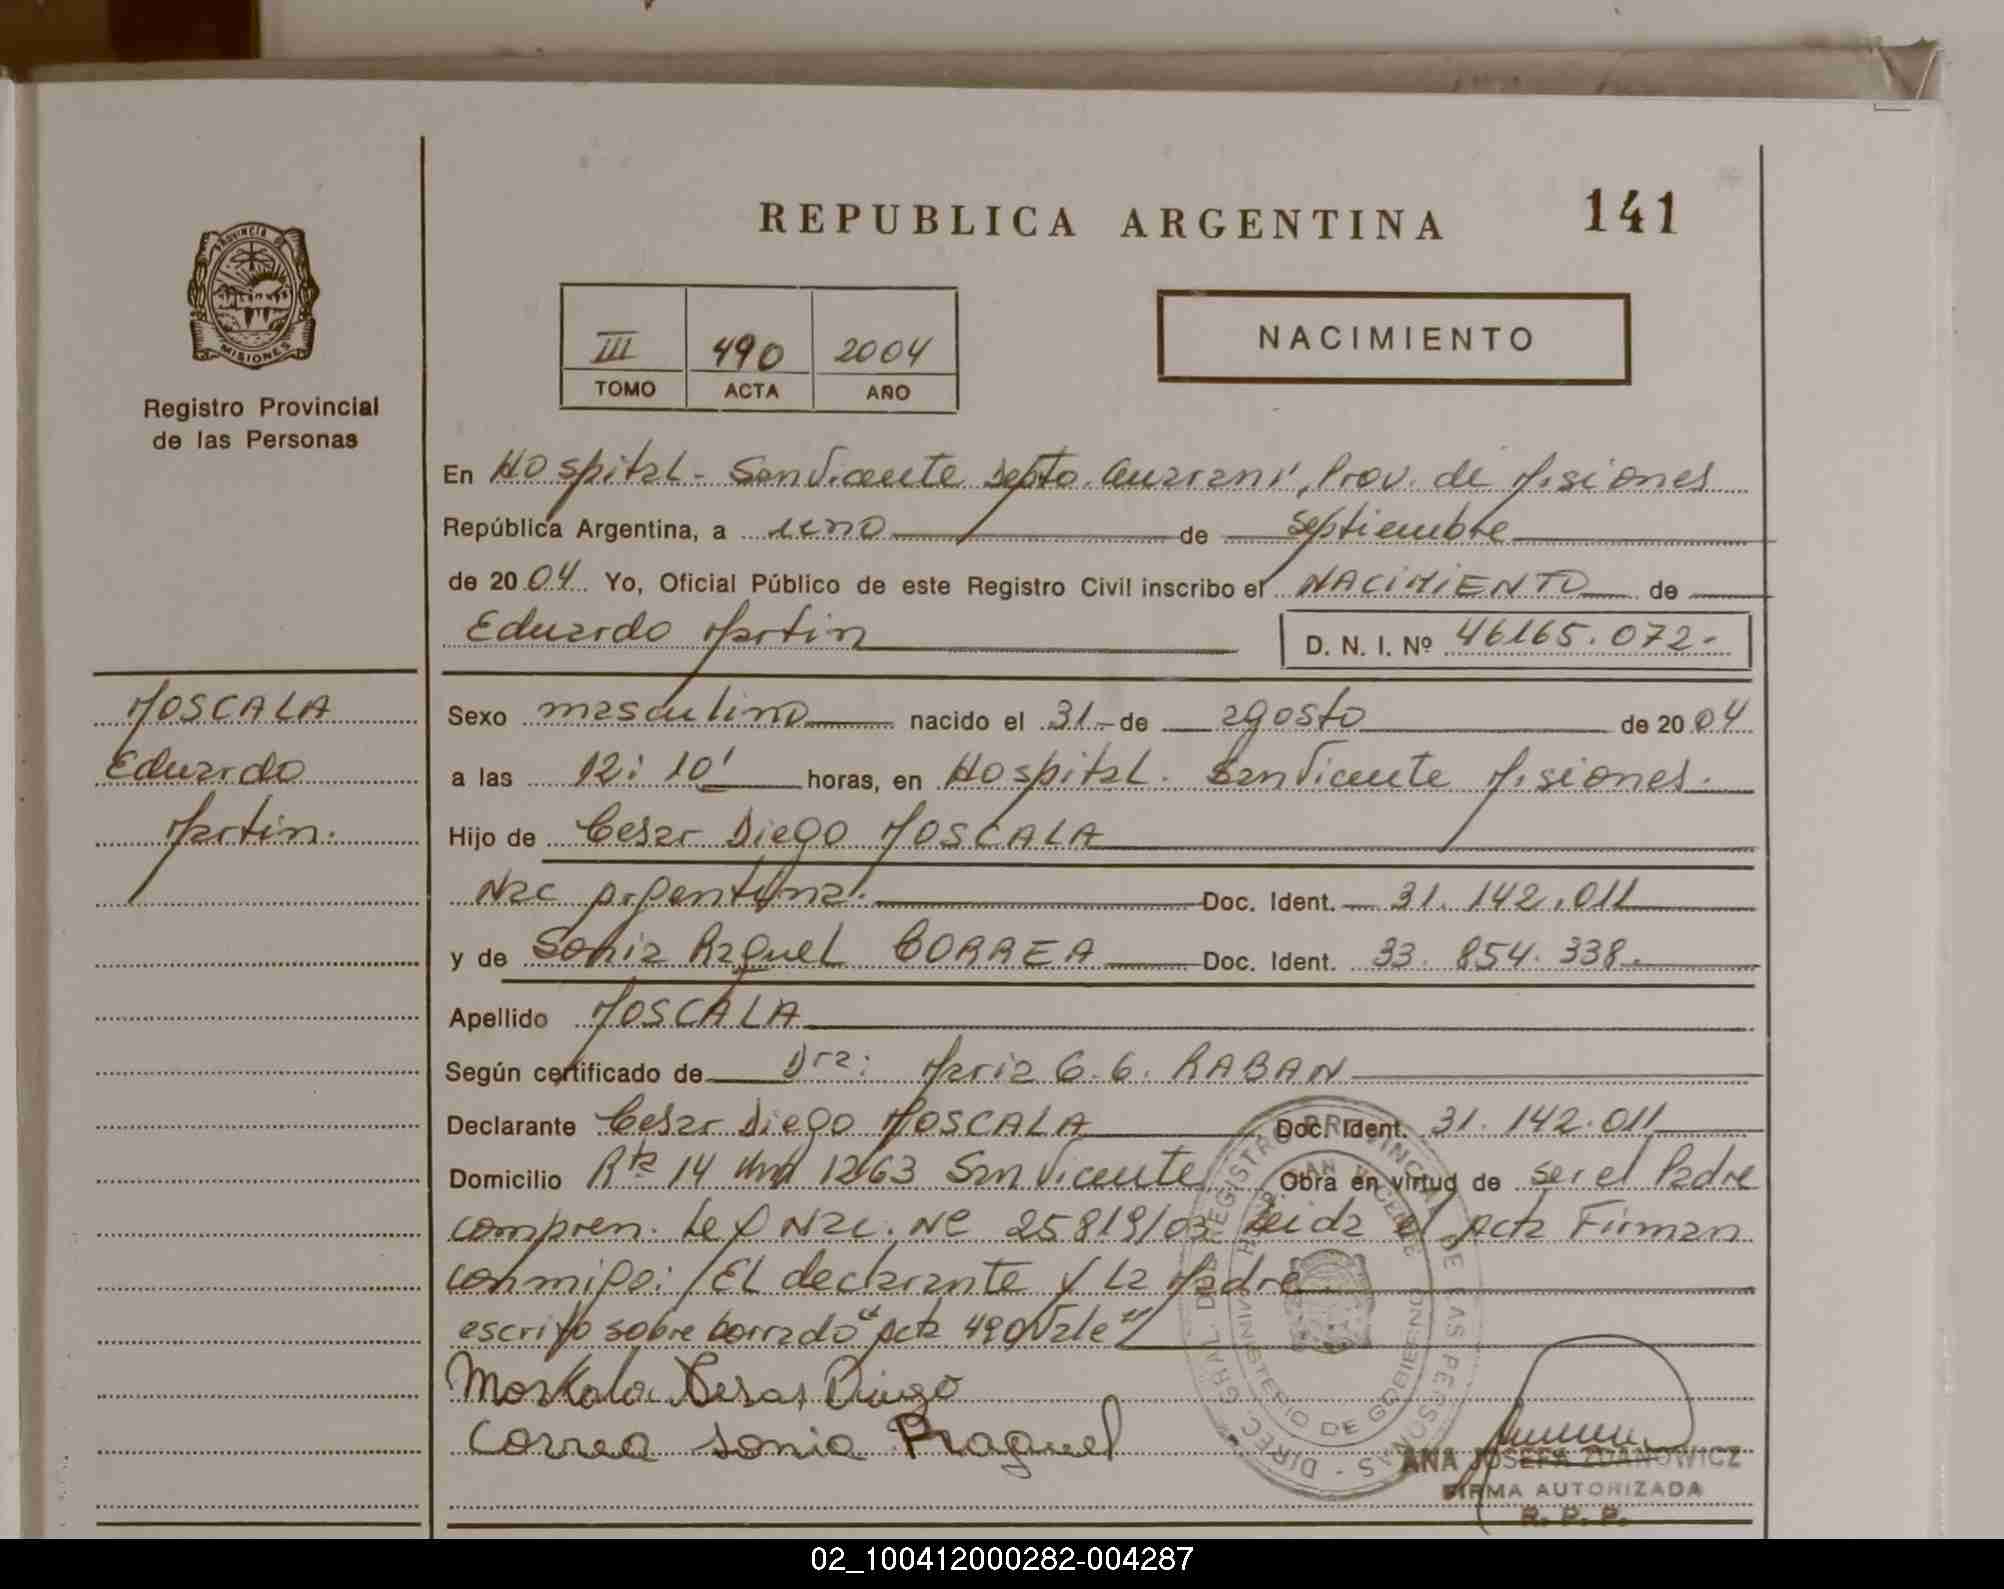 REPUBLICA ARGENTINA
141
PROVINCIA DE
MISIONES
Registro Provincial
de las Personas
III
490
2004
TOMO
ACTA
AÑO
NACIMIENTO
En Hospital - San Vicente Depto. Guarani, Prov. de Misiones
República Argentina, a uno de Septiembre
de 2004. Yo, Oficial Público de este Registro Civil inscribo el NACIMIENTO de
Eduardo Martin
D. N. I. Nº 46165.072-
MOSCALA
Eduardo
Martin.
Sexo masculino nacido el 31 de agosto de 2004
a las 12:10' horas, en Hospital. San Vicente Misiones.
Hijo de Cesar Diego MOSCALA
Nac Argentina. Doc. Ident. 31.142.011
y de Sonia Raquel CORREA Doc. Ident. 33.854.338.
Apellido MOSCALA
Según certificado de Dra: Maria G.G. RABAN
Declarante Cesar Diego MOSCALA Doc. Ident. 31.142.011
Domicilio Rta 14 Km 1263 San Vicente Obra en virtud de ser el Padre
compren. Ley Nac. Nº 25819/03 Leida el Acta Firman
conmigo: El declarante y la Madre
escrito sobre borrado "Acta 490 Vale"
Moskala Cesar Diego
Correa Sonia Raquel
DIREC. GRAL. DEL REGISTRO PROVINCIAL DE LAS PERSONAS
SAN VICENTE
MINISTERIO DE GOBIERNO
ANA JOSEFA ZDANOWICZ
FIRMA AUTORIZADA
R. P. P.
02_100412000282-004287